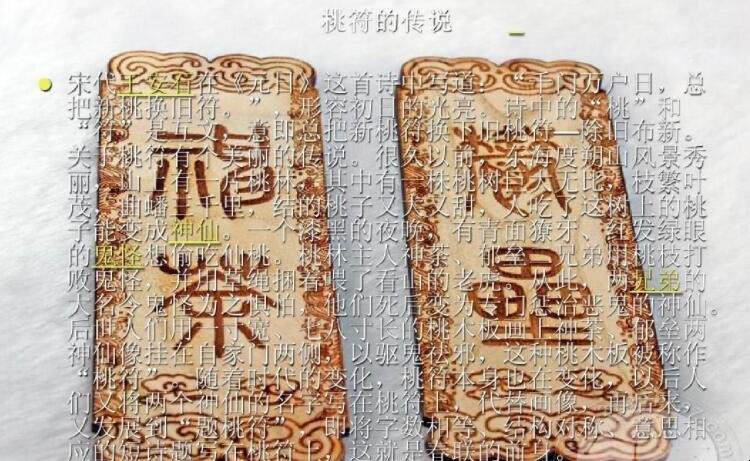 桃符的传说
宋代王安石在《元日》这首诗中写道：“千门万户日，总
把新桃换旧符。”，形容初日的光亮。诗中的“桃”和
“符”是互文，意即总把新桃符换下旧桃符—除旧布新。
关于桃符有个美丽的传说。很久以前，东海度朔山风景秀
丽，山上有片桃林，其中有一株桃树巨大无比，枝繁叶
茂，曲蟠三千里，结的桃子又大又甜，人吃了这树上的桃
子能变成神仙。一个漆黑的夜晚，有青面獠牙、红发绿眼
的鬼怪想偷吃仙桃。桃林主人神荼、郁垒二兄弟用桃枝打
败鬼怪，并用草绳捆着喂了看山的老虎。从此，两兄弟的
大名令鬼怪为之惧怕，他们死后变为专门惩治恶鬼的神仙。
后世人们用一寸宽、七八寸长的桃木板画上神荼、郁垒两
神仙像挂在自家门两侧，以驱鬼祛邪，这种桃木板被称作
“桃符”。随着时代的变化，桃符本身也在变化，以后人
们又将两个神仙的名字写在桃符上，代替画像，再后来，
又发展到“题桃符”，即将字数相等、结构对称、意思相
应的短诗题写在桃符上，这就是春联的前身。